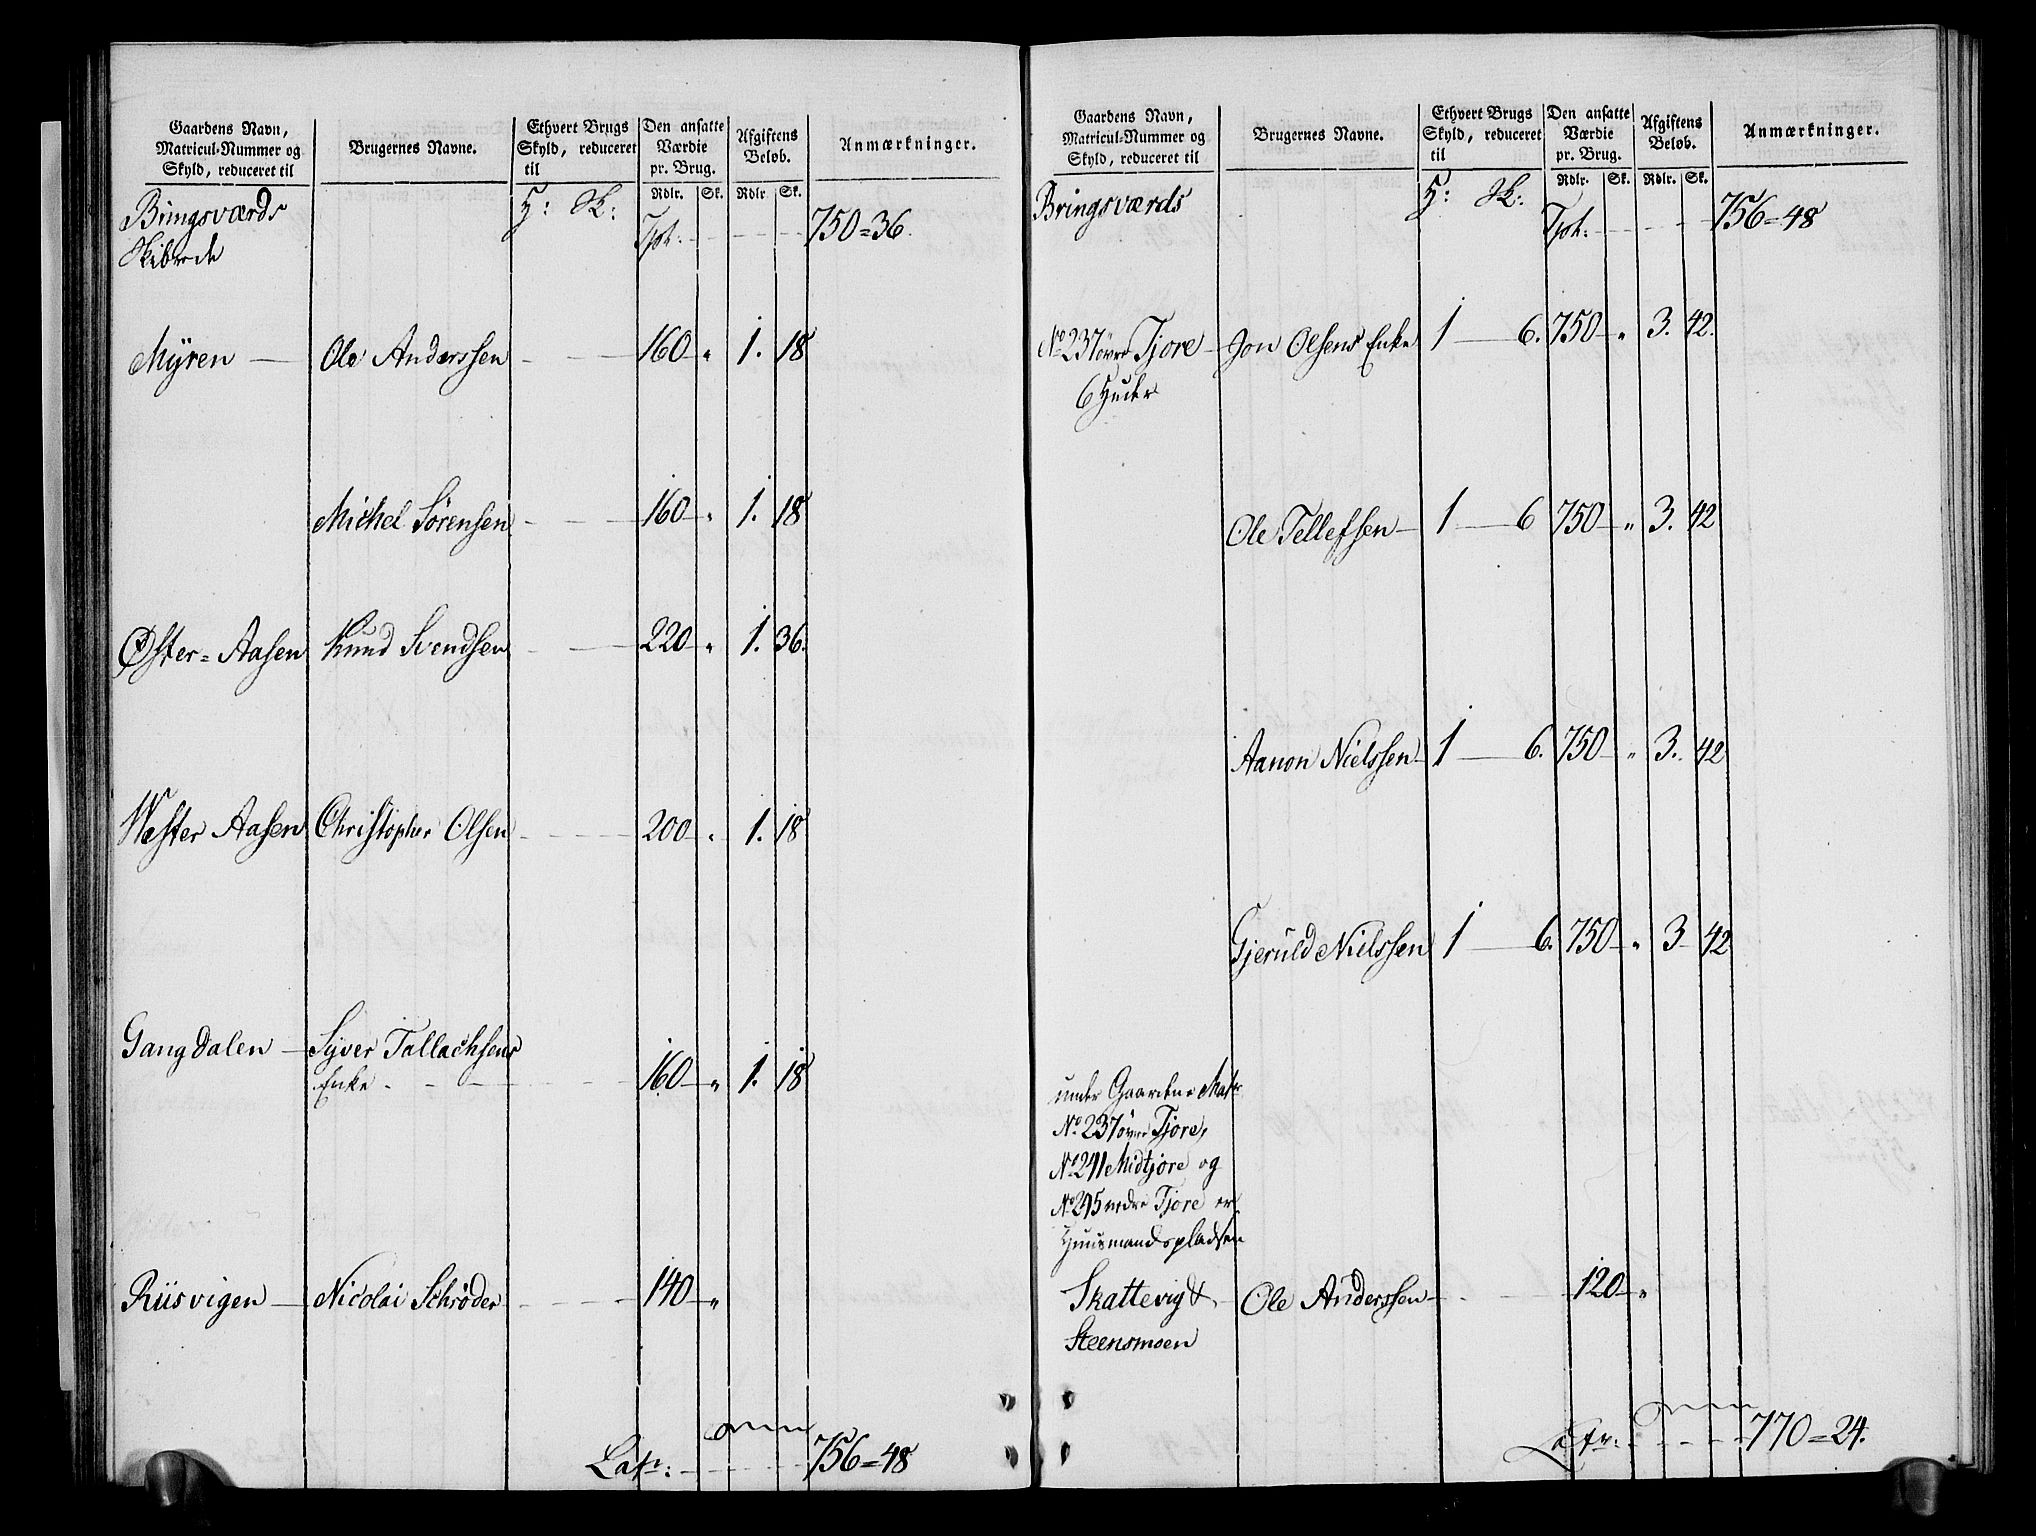 Gaardens Navn,
Matricul-Nummer og
Skyld, reduceret til
Brugernes Navne.
Ethvert Brugs
Skyld, reduceret
til
Den ansatte
Værdie
pr. Brug.
Afgiftens
Beløb.
Anmærkninger.
Rdlr. Sk. Rdlr Sk.
Bringsværds H: Sk:
Skibrede Tpt: 750=36.
Myren Ole Anderssen 160 „ 1. 18
Michel Sørensen 160 „ 1. 18
Øster=Aasen Knud Svendsen 220 „ 1. 36.
Wester Aasen Christopher Olsen 200 „ 1. 18
Gangdalen Syver Tallachsens
Enke 160 „ 1. 18
Riisvigen Nicolai Schrøder 140 „
Latr: 756=48
Gaardens Navn,
Matricul-Nummer og
Skyld, reduceret til
Brugernes Navne.
Ethvert Brugs
Skyld, reduceret
til
Den ansatte
Værdie
pr. Brug.
Afgiftens
Beløb.
Anmærkninger.
Rdlr. Sk. Rdlr. Sk.
Bringsværds H: Sk:
Tpt: 756=48
No 237 øvre Tjore Jon Olsens Enke 1 6. 750 „ 3. 42.
6 Huder
Ole Tellefsen 1 6 750 „ 3. 42
Aanon Nielssen 1 6. 750 „ 3. 42
Gjeruld Nielssen 1 6. 750 „ 3 42
under Gaardene Matr
No 237 øvre Tjore,
No 241 Midtjore og
No 245 nedre Tjore er
Huusmandspladsen
Skattevig & Ole Anderssen 120 „
Steensmoen
Latr: 770=24.